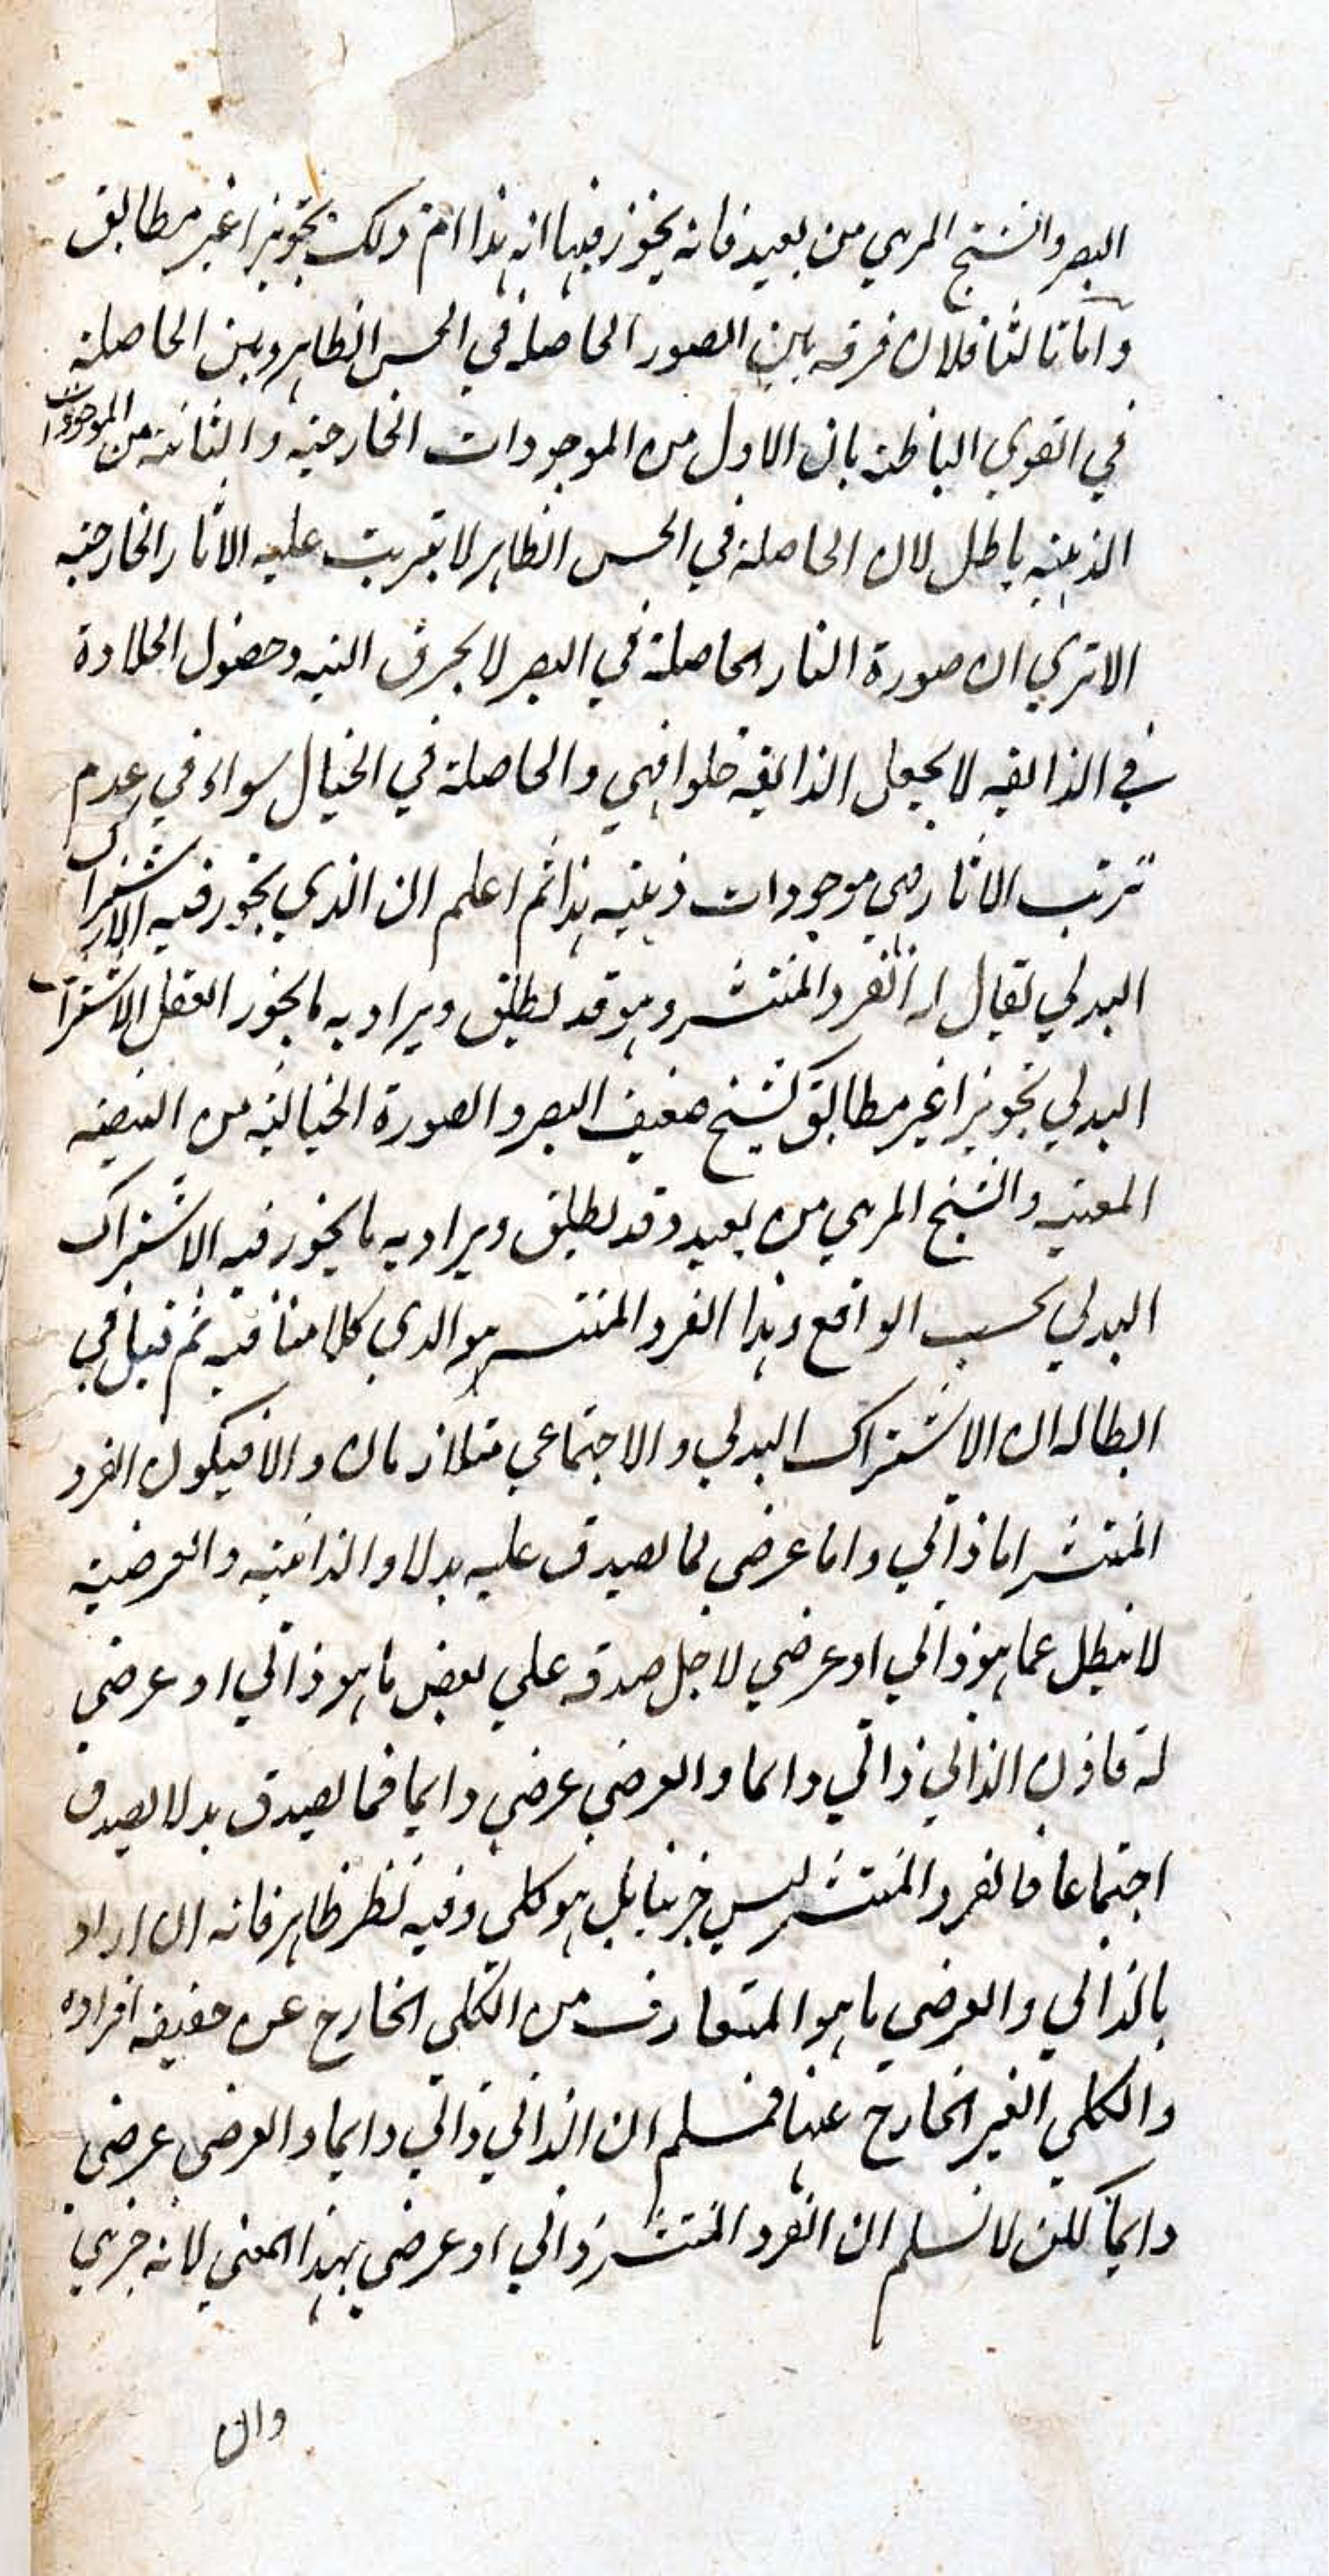 البصر والشبح المرىي من بعيد فانه يجوز فيها انه هذا ام ذلك تجويزا غير مطابق
واما ثالثا فلان فرقه بين الصور الحاصلة في الحس الظاهر وبين الحاصلة
في القوي الباطنة بان الاول من الموجودات الخارجية والثانية من الموجودات
الذهنية باطل لان الحاصلة في الحس الظاهر لا يترتب عليه الاثار الخارجية
الا تري ان صورة النار الحاصلة في البصر لا يحرق البنيه وحصول الحلاوة
في الذايقه لا يجعل الذايقة حلوا فهي والحاصلة في الخيال سواء في عدم
ترتب الاثار فهي موجودات ذهنيه هذا ثم اعلم ان الذي يجوز فيه الاشتراك
البدلي يقال له الفرد المنتشر وهو قد يطلق ويراد به ما يجوز العقل الاشتراك
البدلي تجويزا غير مطابق كشبح ضعيف البصر والصورة الخيالية من البيضه
المعينه والشبح المرىي من بعيد وقد يطلق ويراد به ما يجوز فيه الاشتراك
البدلي بحسب الواقع وهذا الفرد المنتشر هو الذي كلامنا فيه ثم قيل في
ابطاله ان الاشتراك البدلي والاجتماعي متلازمان والا فيكون الفرد
المنتشر اما ذاتي واما عرضي لما يصدق عليه بدلا والذاتية والعرضية
لا تبطل عما هو ذاتي او عرضي لاجل صدقه علي بعض ما هو ذاتي او عرضي
له فاذن الذاتي ذاتي دايما والعرضي عرضي دايما فما يصدق بدلا يصدق
اجتماعا فالفرد المنتشر ليس جزيا بل هو كلي وفيه نظر ظاهر فانه ان اراد
بالذاتي والعرضي ما هو المتعارف من الكلي الخارج عن حقيقة افراده
والكلي الغير الخارج عنها فمسلم ان الذاتي ذاتي دايما والعرضي عرضي
دايما لكن لا نسلم ان الفرد المنتشر ذاتي او عرضي بهذا المعني لانه جزىي
وان